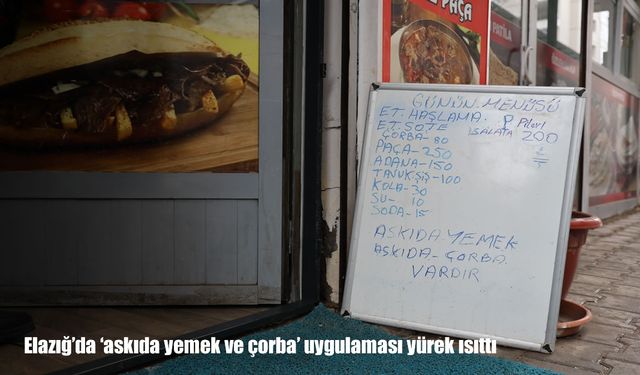 PAÇA
PATİLA
GÜNÜN MENÜSÜ
ET. HAŞLAMA. Pilav
ET. SOTE SALATA 200
ÇORBA - 80
PAÇA - 250
ADANA - 150
TAVUK.ŞİŞ - 100
KOLA - 30
SU - 10
SODA - 15
ASKIDA YEMEK
ASKIDA - ÇORBA
VARDIR
Elazığ’da ‘askıda yemek ve çorba’ uygulaması yürek ısıttı